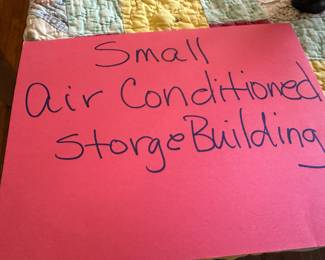 Small
air Conditioned
Storge Building